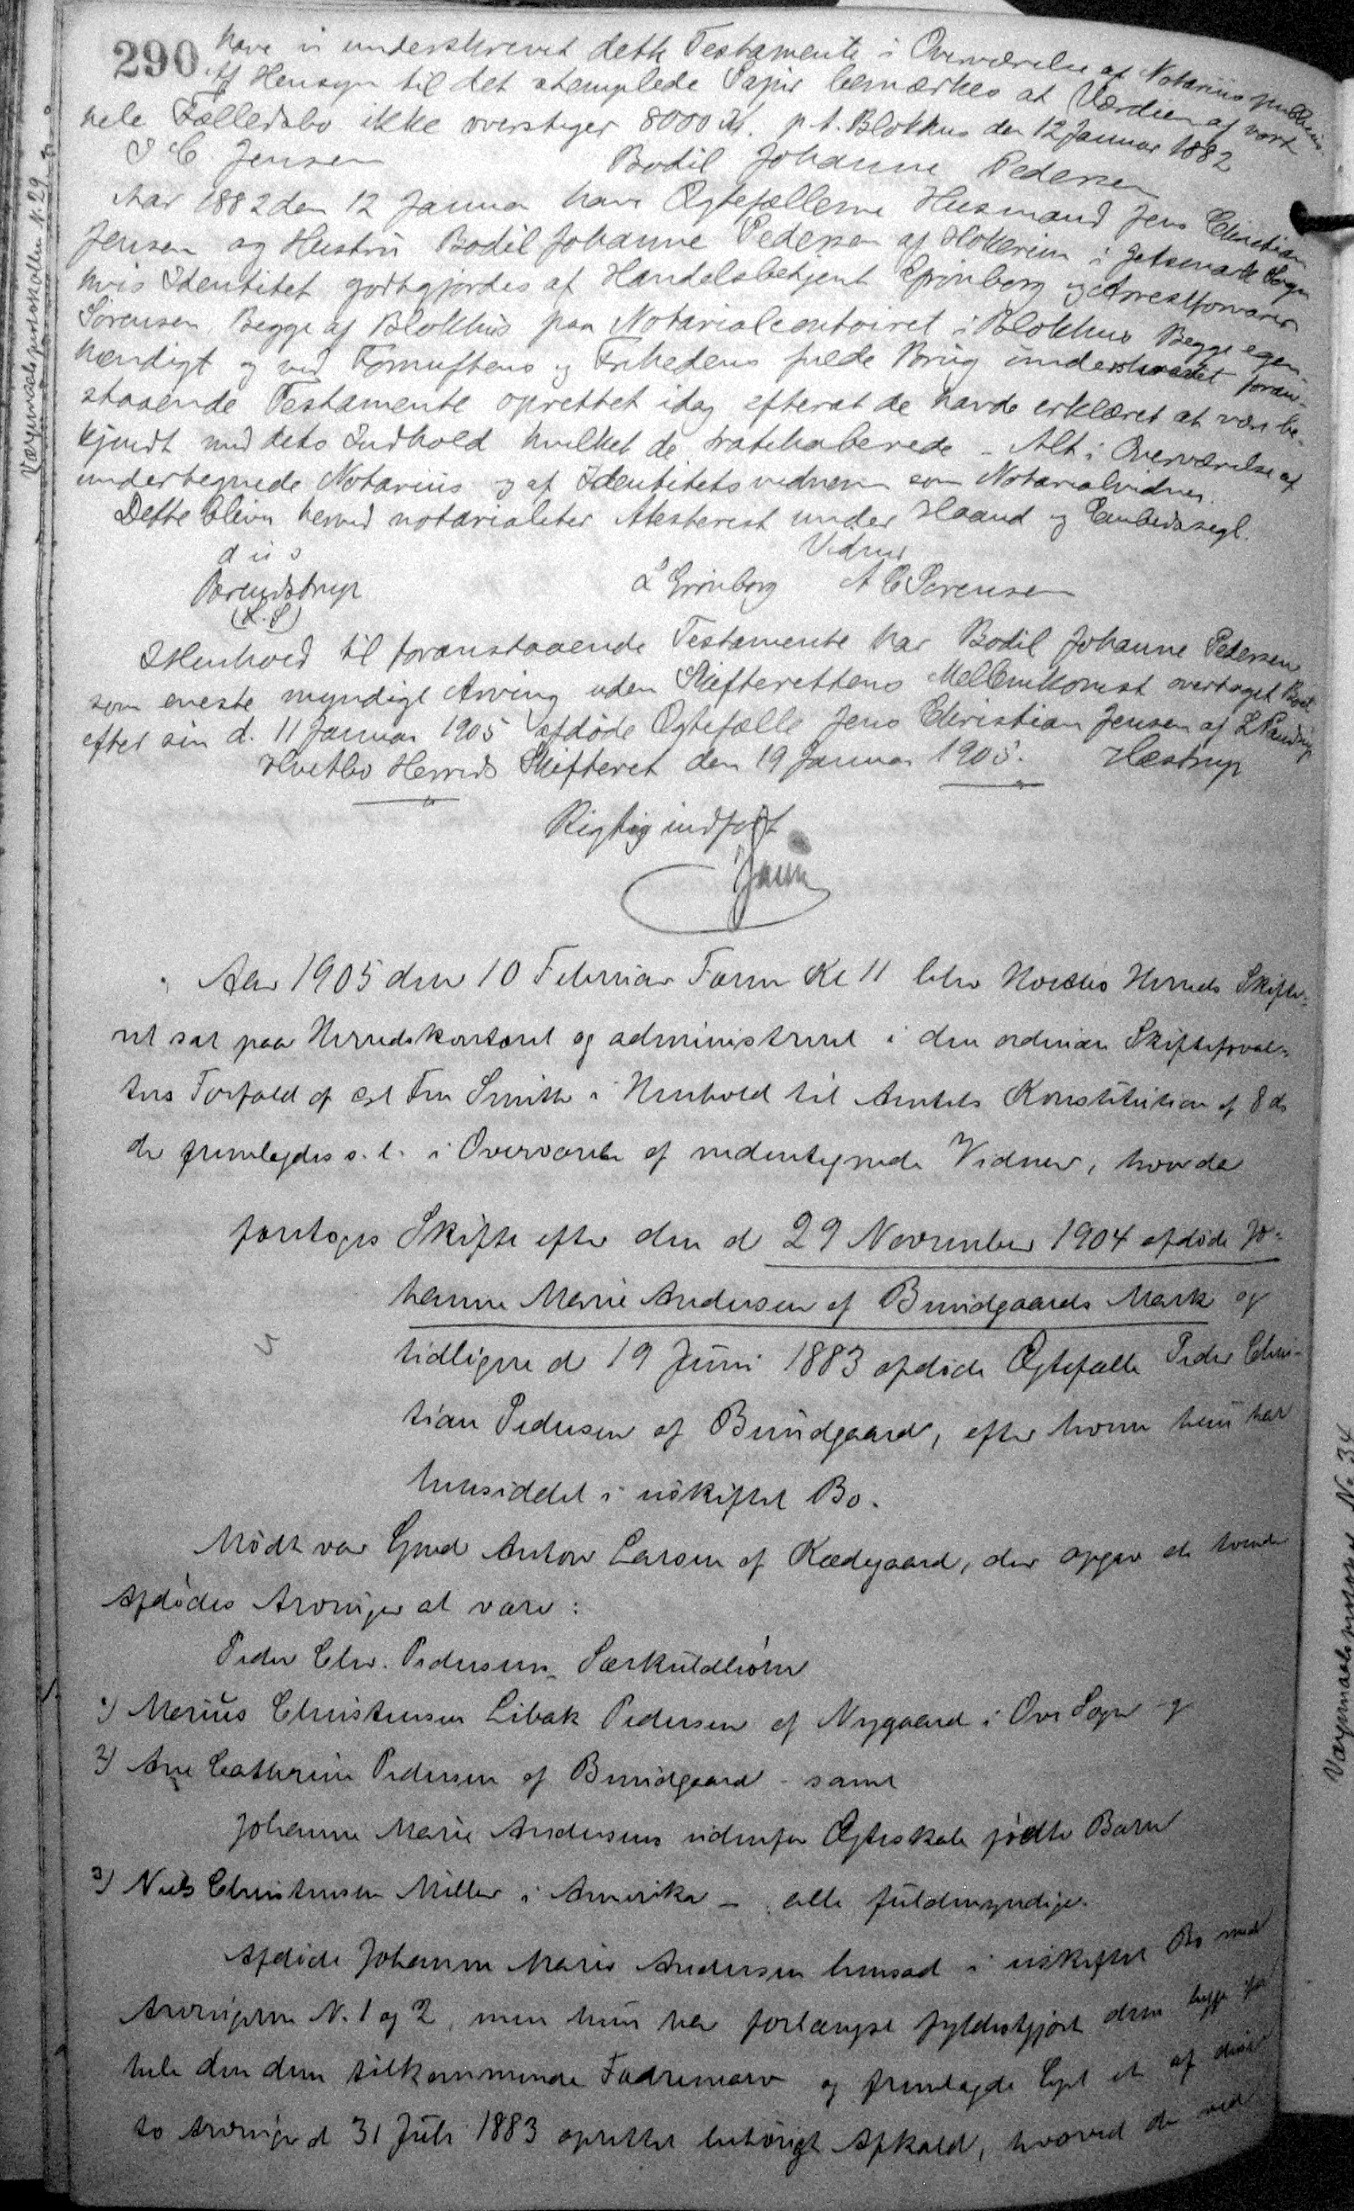 290
have vi underskrevet dette Testamente i Overværelse af Notarius publicus.
Af Hensyn til det stemplede Papir bemærkes at Værdien af vort
hele Fællesbo ikke overstiger 8000 Kr. p. t. Blokhus den 12 Januar 1882
J C. Jensen Bodil Johanne Pedersen
Aar 1882 den 12 Januar have Ægtefællerne Husmand Jens Christian
Jensen og Hustru Bodil Johanne Pedersen af i Jetsmark Sogn
hvis Identitet godtgjordes af Handelsbetjent Grönberg og Arrestforvarer
Sörensen, Begge af Blokhus paa Notarialcontoiret i Blokhus Begge egen-
hændigt og ved Fornuftens og Frihedens fulde Brug underskrevet foran-
staaende Testamente oprettet idag efterat de havde erklæret at være be-
kjendt med dets Indhold hvilket de ratihaberede - Alt i Overværelse af
undertegnede Notarius og af Identitetsvidnerne som Notarialvidner.
Dette bliver herved notarialiter Attesteret under Haand og Embedssegl.
d u s Vidner
Brendstrup L Grönborg A C Sörensen
(L. S)
I Henhold til foranstaaende Testamente har Bodil Johanne Pedersen
som eneste myndige Arving uden Skifterettens Mellemkomst overtaget Boet
efter sin d. 11 Januar 1905 afdöde Ægtefælle Jens Christian Jensen af
Hvetbo Herreds Skifteret den 19 Januar 1905. Hæstrup
Rigtig indfört
Aar 1905 den 10 Februar Form Kl 11 blev Herreds Skifte-
ret sat paa Herredskontoret og administreret i den ordinære Skifteforval-
ters Forfald af Smith i Henhold til Amtets Konstitution af 8 ds
der fremlagdes s. l. i Overværelse af nedentegnede Vidner, hvorda
foretoges Skifte efter den d 29 November 1904 afdöde Jo-
hanne Marie Andersen af Bundgaards Mark og
tidligere d 19 Juni 1883 afdöde Ægtefælle Peder Chri-
stian Pedersen af Bundgaard, efter hvem hun har
hensiddet i uskiftet Bo.
Mödt var Gmd Anton Larsen af Kædegaard, der opgav de tvende
Afdödes Arvinger at være:
Peder Chr. Pedersens Særkuldbörn
1) Marius Christensen Libak Pedersen af Nygaard i Sogn og
2) Ane Cathrine Pedersen af Bundgaard - samt
Johanne Marie Andersens udenfor Ægteskab födte Barn
3) Niels Christensen Miller i Amerika - alle fuldmyndige.
Afdöde Johanne Marie Andersen hensad i uskiftet Bo med
Arvingerne N. 1 og 2, men hun har forlængst fyldestgjort dem begge for
hele den dem tilkommende Fædrenearv og fremlagde et af disse
to Arvinger d 31 Juli 1883 oprettet behörigt Afkald, hvorved de ved
Værgemaalsprotokollen N. 29
Værgemaalsprotokol No 34